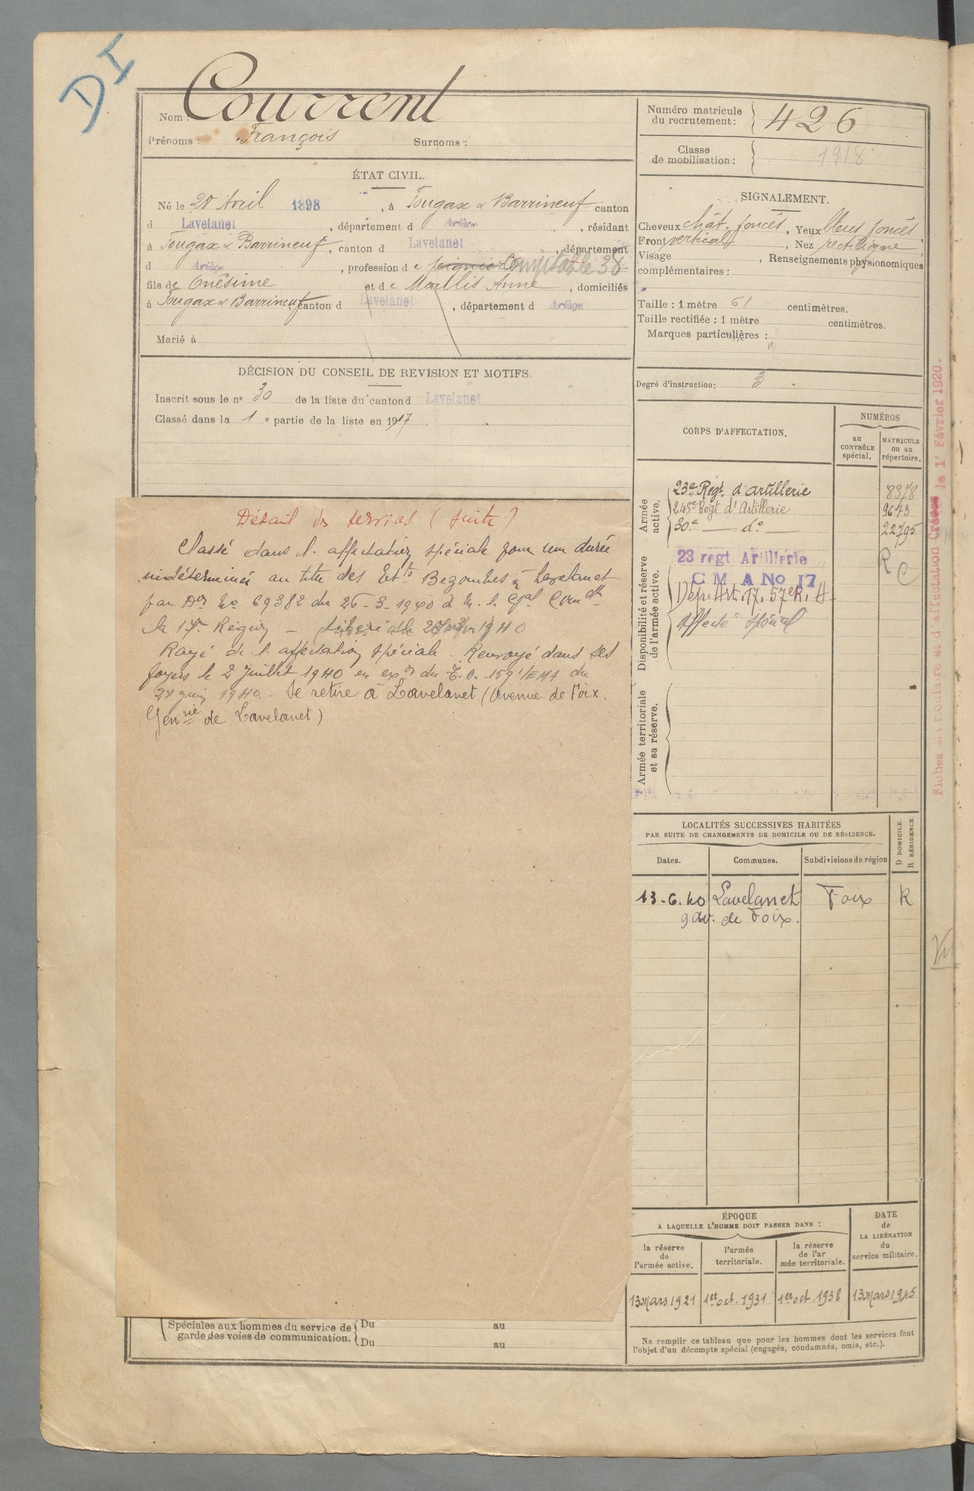 DI
Nom Courrent
Prénoms : François Surnoms :
Numéro matricule du recrutement : 426
Classe de mobilisation : 1918
ÉTAT CIVIL.
Né le 20 Avril 1898, à Dougax & Barrineuf canton
d Lavelanet, département d Ariège, résidant
à Dougax & Barrineuf, canton d Lavelanet, département
d Ariège, profession de peigneur Comptable 38
fils de Onésime et de Maillis Anne, domiciliés
à Dougax & Barrineuf canton d Lavelanet, département d Ariège
Marié à
SIGNALEMENT.
Cheveux chât. foncés, Yeux bleus foncés
Front vertical, Nez rectiligne
Visage , Renseignements physionomiques
complémentaires :
Taille : 1 mètre 61 centimètres.
Taille rectifiée : 1 mètre centimètres.
Marques particulières :
Degré d'instruction : 3
DÉCISION DU CONSEIL DE REVISION ET MOTIFS.
Inscrit sous le n° 30 de la liste du canton d Lavelanet
Classé dans la 1 e partie de la liste en 1917
Détail des services (suite)
Classé dans l'affectation spéciale pour une durée
indéterminée au titre des Etts Bezombes à Lavelanet
par Don No 69382 du 26-3-1940 de M. le Gal Comdt
la 17e Région –
Rayé de l'affectation spéciale. Renvoyé dans ses
foyers le 2 juillet 1940 en exon du
27 juin 1940. Se retire à Lavelanet (Avenue de Foix.
Genrie de Lavelanet)
CORPS D'AFFECTATION.
NUMÉROS
au CONTRÔLE spécial.
MATRICULE ou au répertoire.
Armée active.
23e Régt d'artillerie 8378
245e Regt d'Artillerie 9643
30e — do 22795
Disponibilité et réserve de l'armée active.
23 regt Artillerie R
C M A No 17 C
Dépt Art. 17, 57e R. A.
affecté spécial
Armée territoriale et sa réserve.
Fiches de position et d'affectation Créées le 1er Février 1920.
LOCALITÉS SUCCESSIVES HABITÉES
PAR SUITE DE CHANGEMENTS DE DOMICILE OU DE RÉSIDENCE.
Dates. Communes. Subdivisions de région D DOMICILE. R RÉSIDENCE
13-6.40 Lavelanet Foix R
9 av. de Foix.
ÉPOQUE
A LAQUELLE L'HOMME DOIT PASSER DANS :
la réserve de l'armée active.
l'armée territoriale.
la réserve de l'armée territoriale.
DATE de LA LIBÉRATION du service militaire.
13 mars 1921 1er oct. 1931 1er oct. 1938 13 mars 1945
Spéciales aux hommes du service de garde des voies de communication. Du au
Du au
Ne remplir ce tableau que pour les hommes dont les services font
l'objet d'un décompte spécial (engagés, condamnés, omis, etc.).